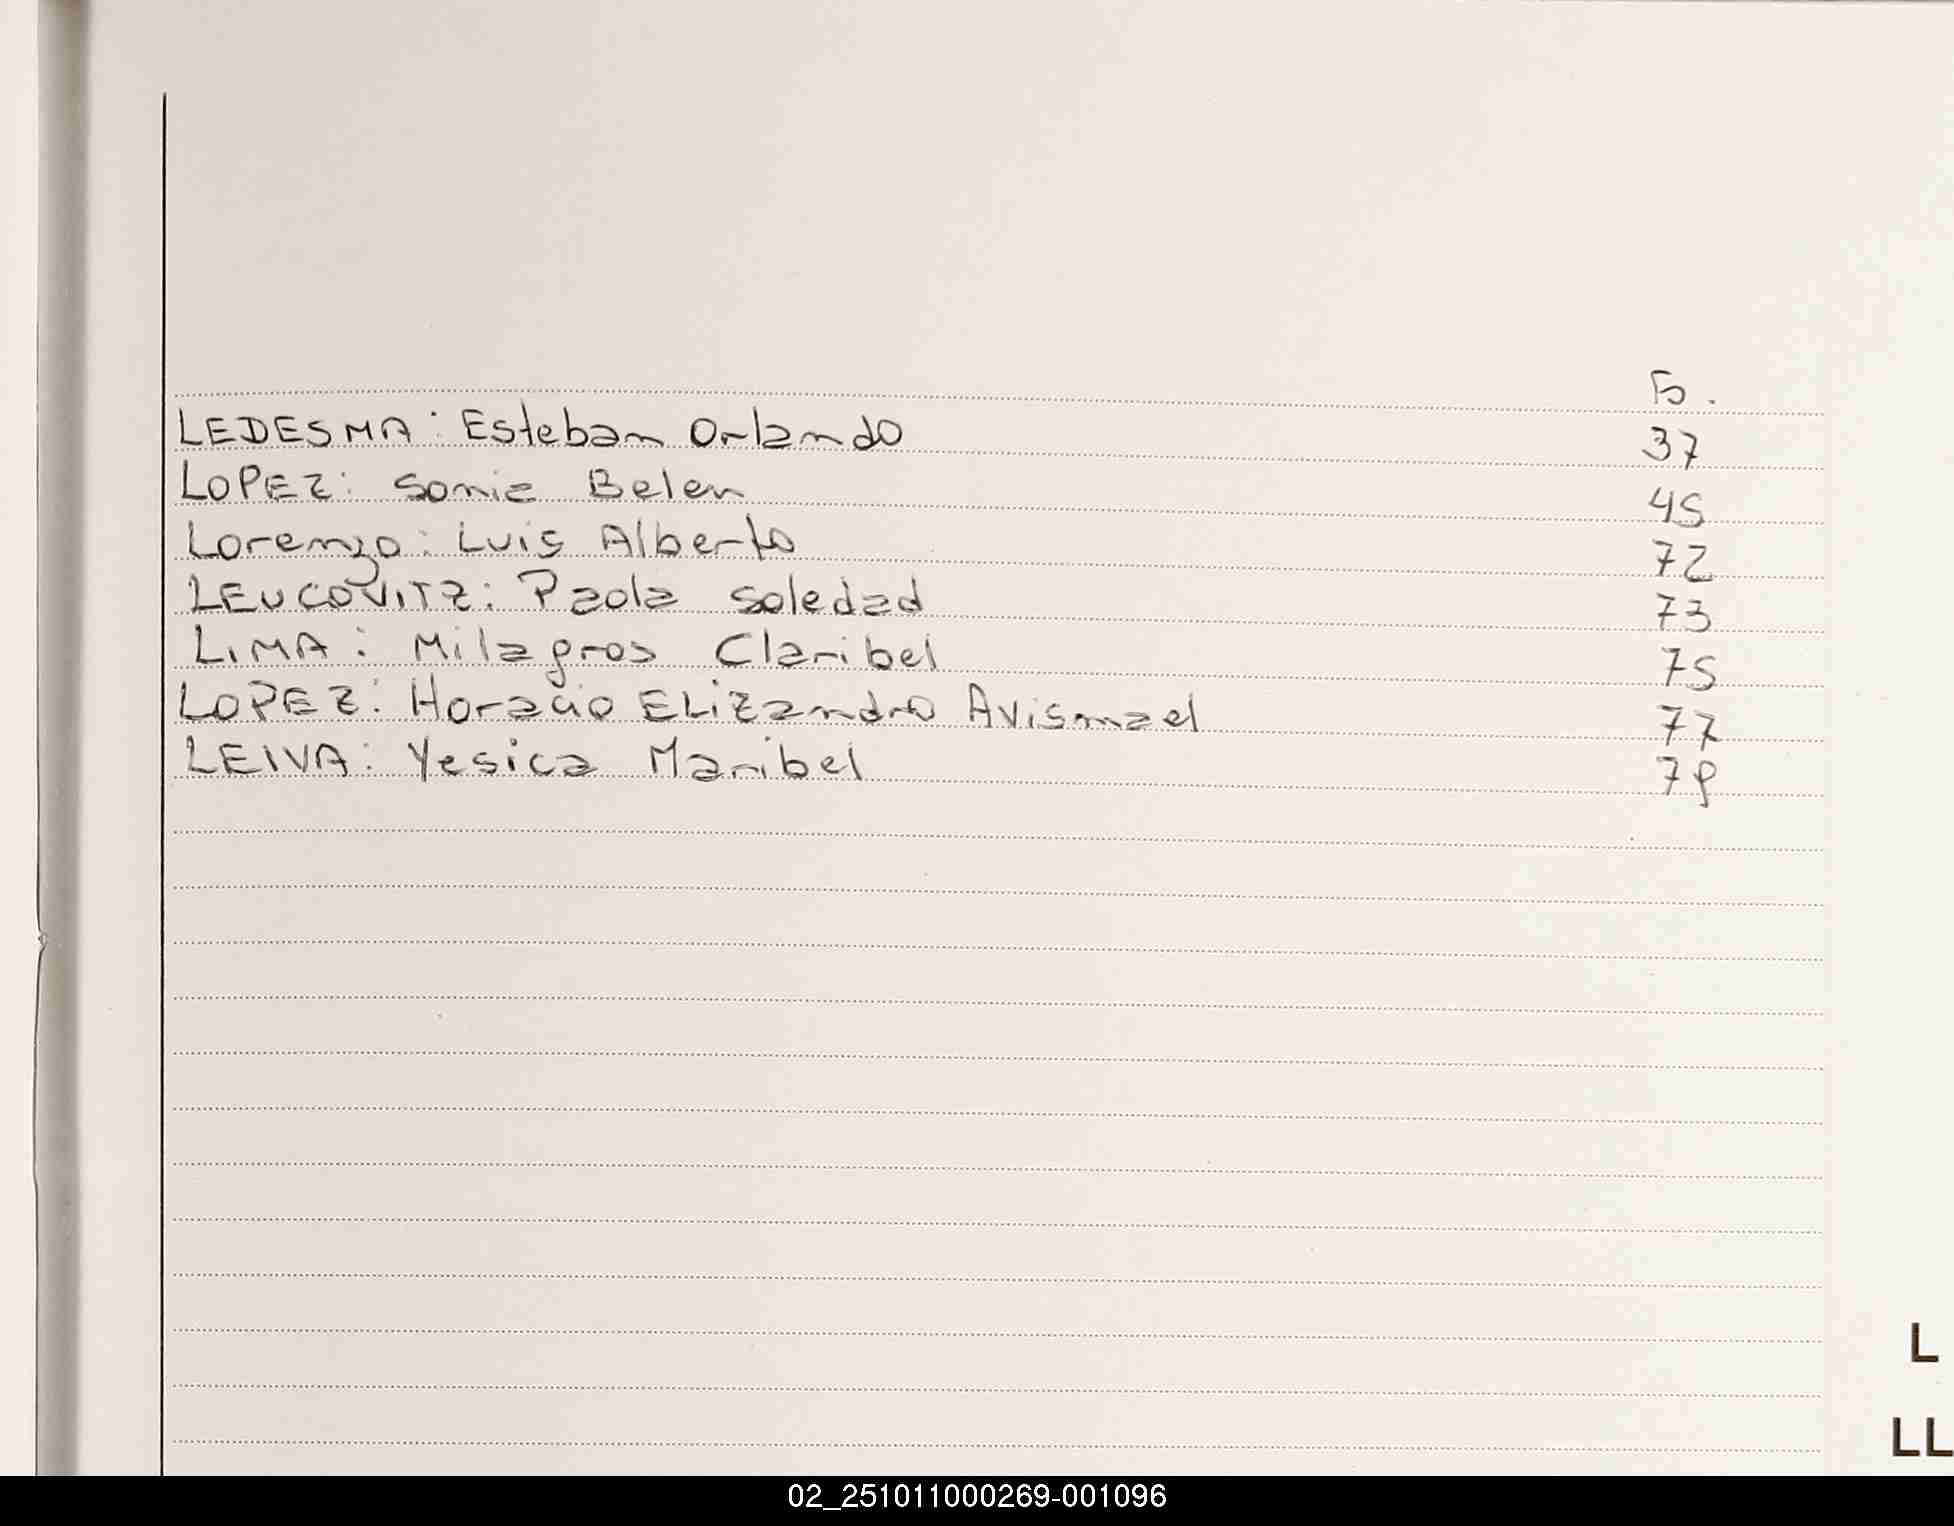 Fo.
LEDESMA: Esteban Orlando 37
LOPEZ: Sonia Belen 45
Lorenzo: Luis Alberto 72
LEUCOVITZ: Paola Soledad 73
LIMA: Milagros Claribel 75
LOPEZ: Horacio ELizandro Avismael 77
LEIVA: Yesica Maribel 79
L
LL
02_251011000269-001096